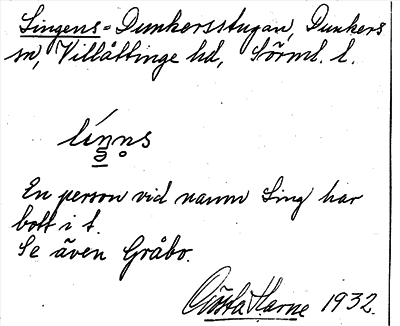 Singens = Dunkersstugan, Dunkers
sn, Villåttinge hd, Sörml. l.
línns
En person vid namn Sing har
bott i t.
Se även Gråbo.
Gösta Harne 1932.